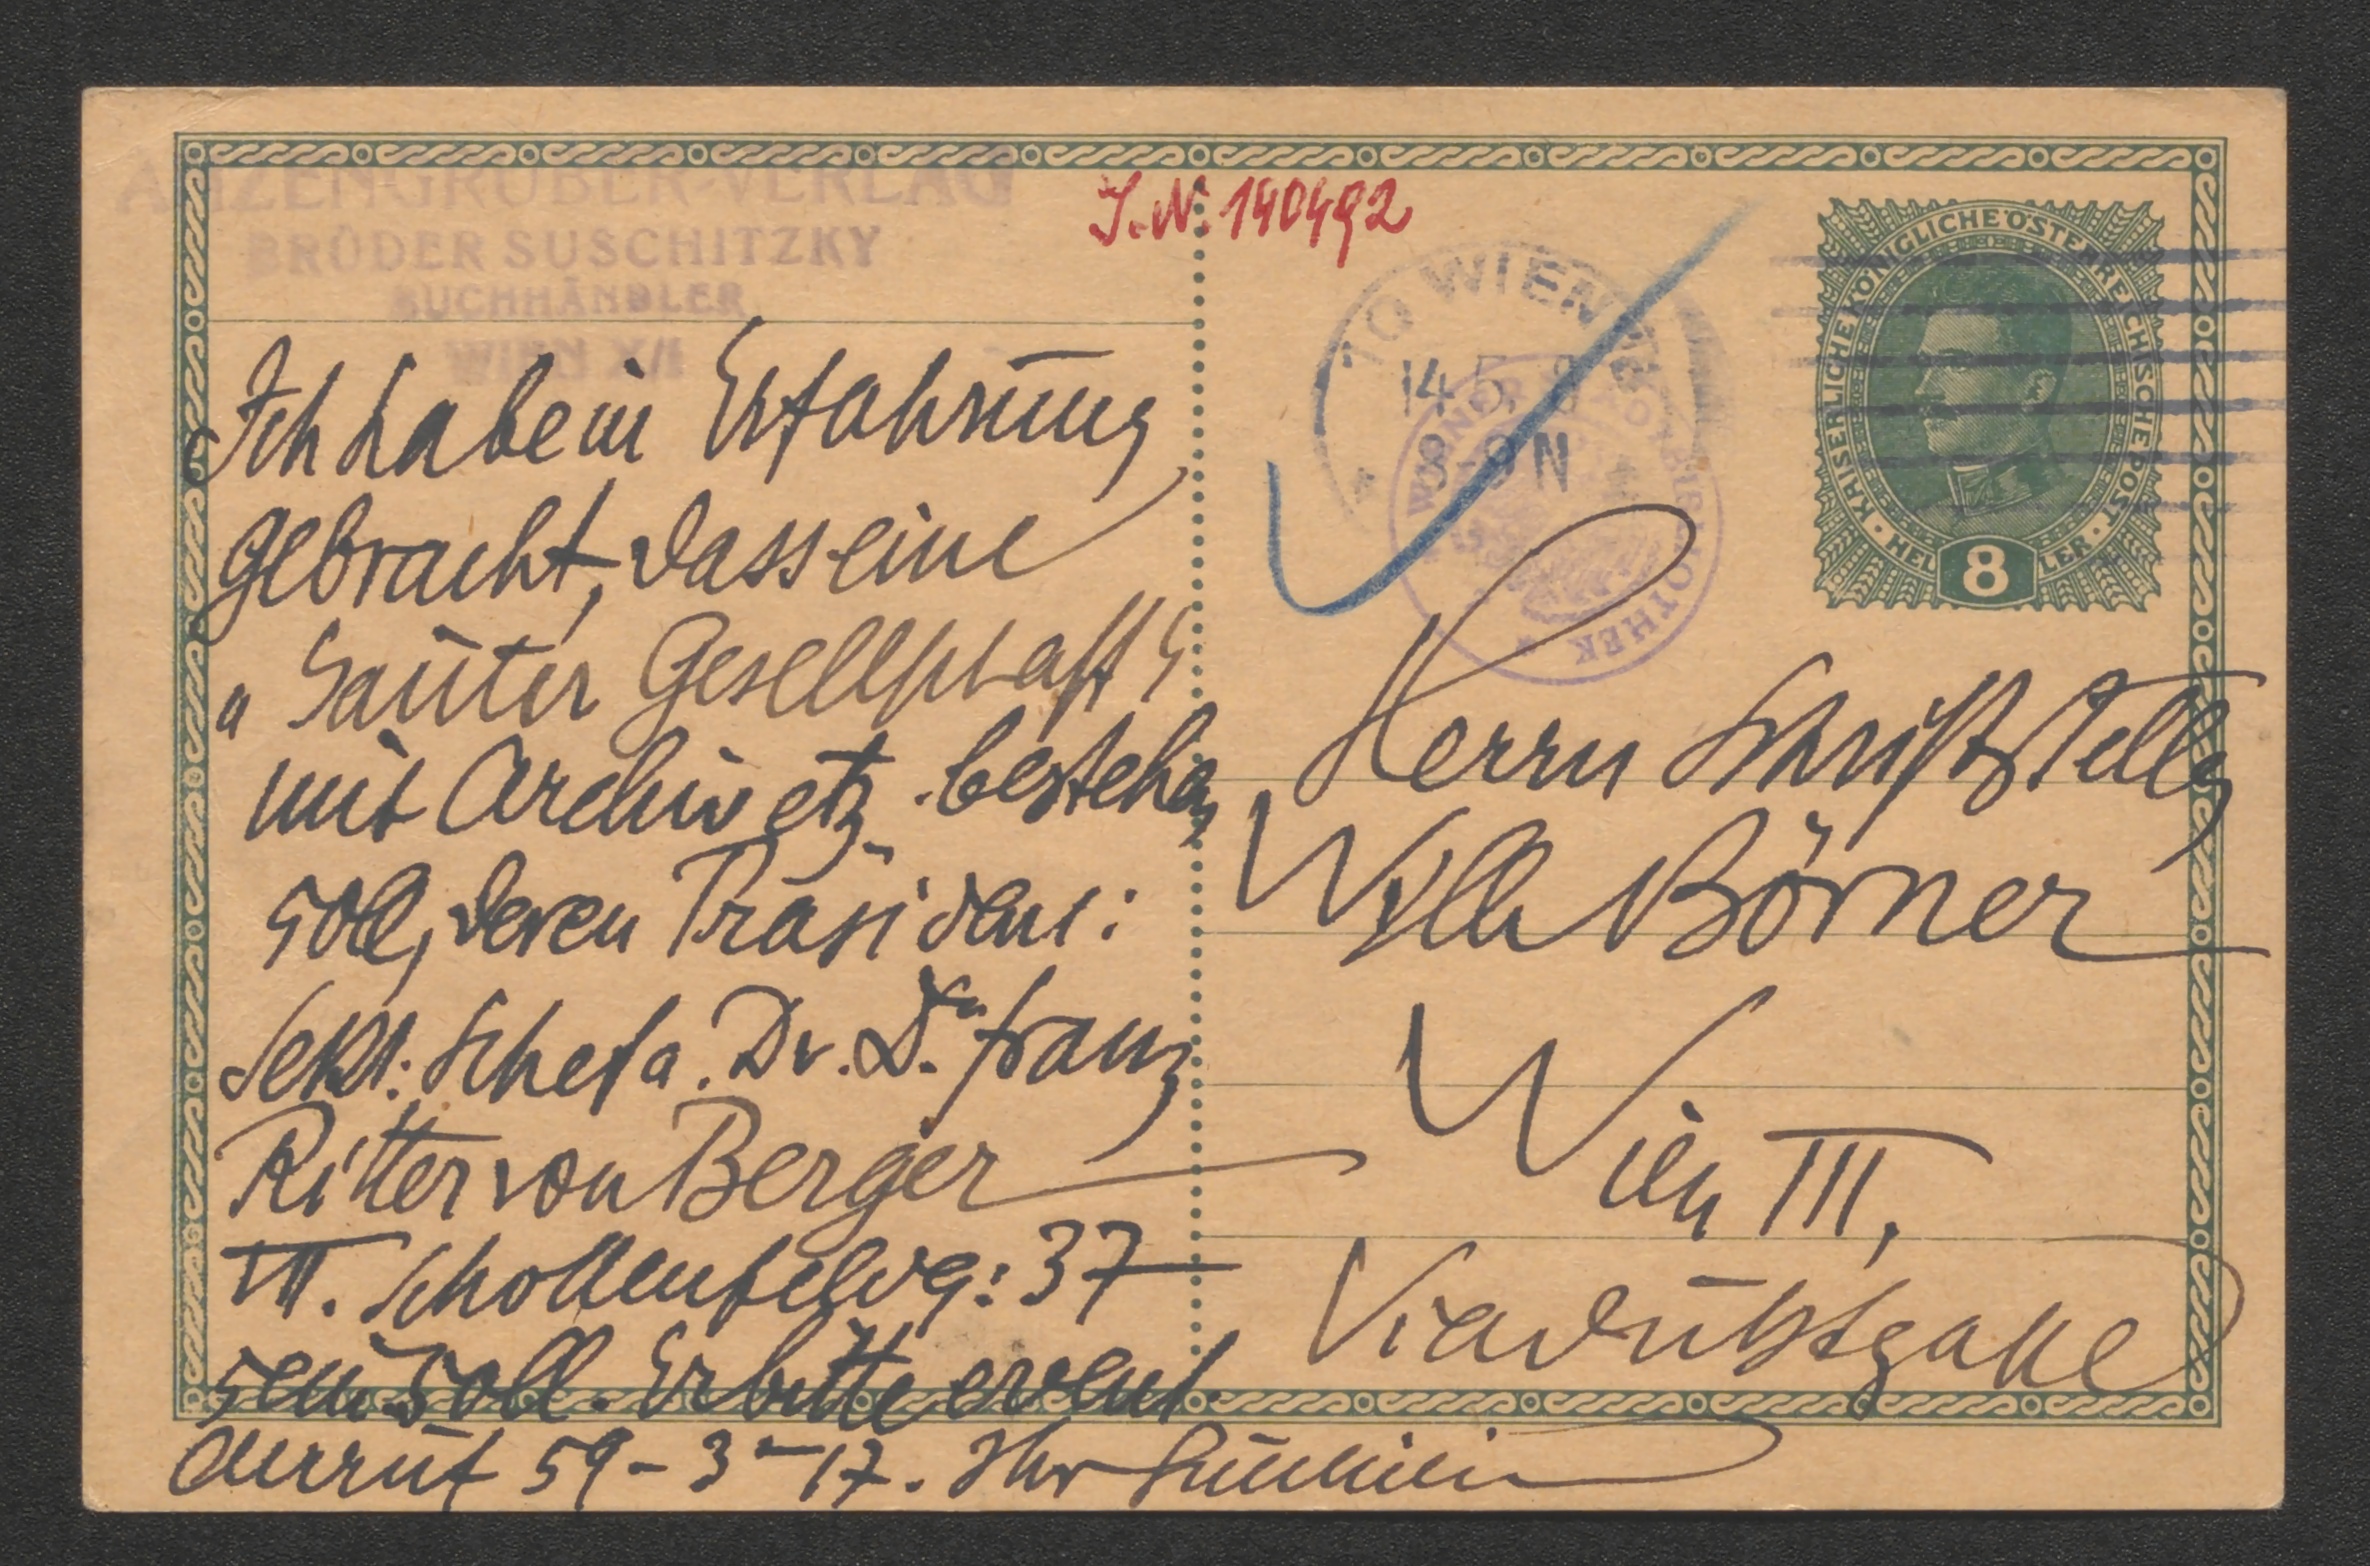 ANZENGRUBER-VERLAG
BRÜDER SUSCHITZKY
BUCHHÄNDLER
WIEN X/1
J.N. 140492
10 WIEN
14 5
8-9N
WIENER STADTBIBLIOTHEK
KAISERLICHE KÖNIGLICHE ÖSTERREICHISCHE POST
HELLER
8
Ich habe in Erfahrung
gebracht, dass eine
„Sauter Gesellschaft“
mit Archiv etz. bestehen
soll, deren Präsident:
Sekt: Chef a. Dr. Dr. Franz
Ritter von Berger
VII. Schottenfeldg: 37
sein soll. Erbitte event.
Anruf 59-3-17. Ihr Suschitzky
Herrn Schriftsteller
Willi Börner
Wien III,
Viaduktgasse